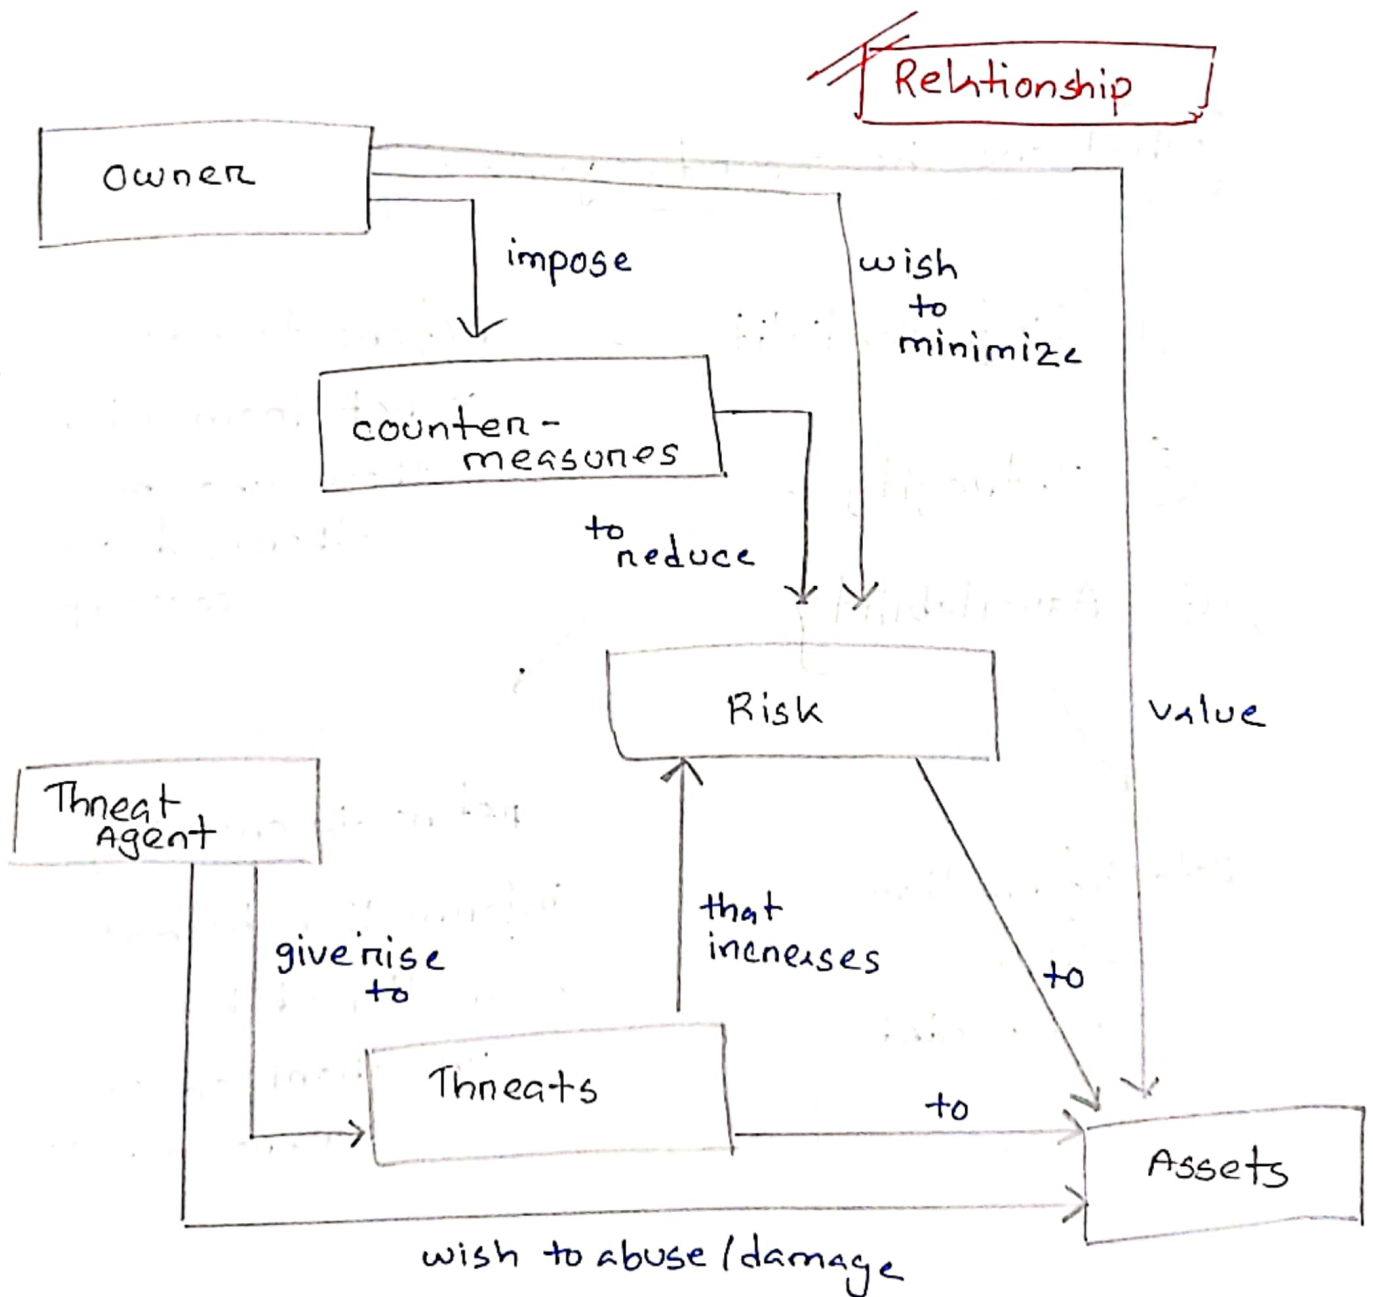 Relationship
owner
impose
wish
to
minimize
counter-
measures
to
reduce
Risk
value
Threat
Agent
that
increases
give rise
to
to
Threats
to
Assets
wish to abuse/damage